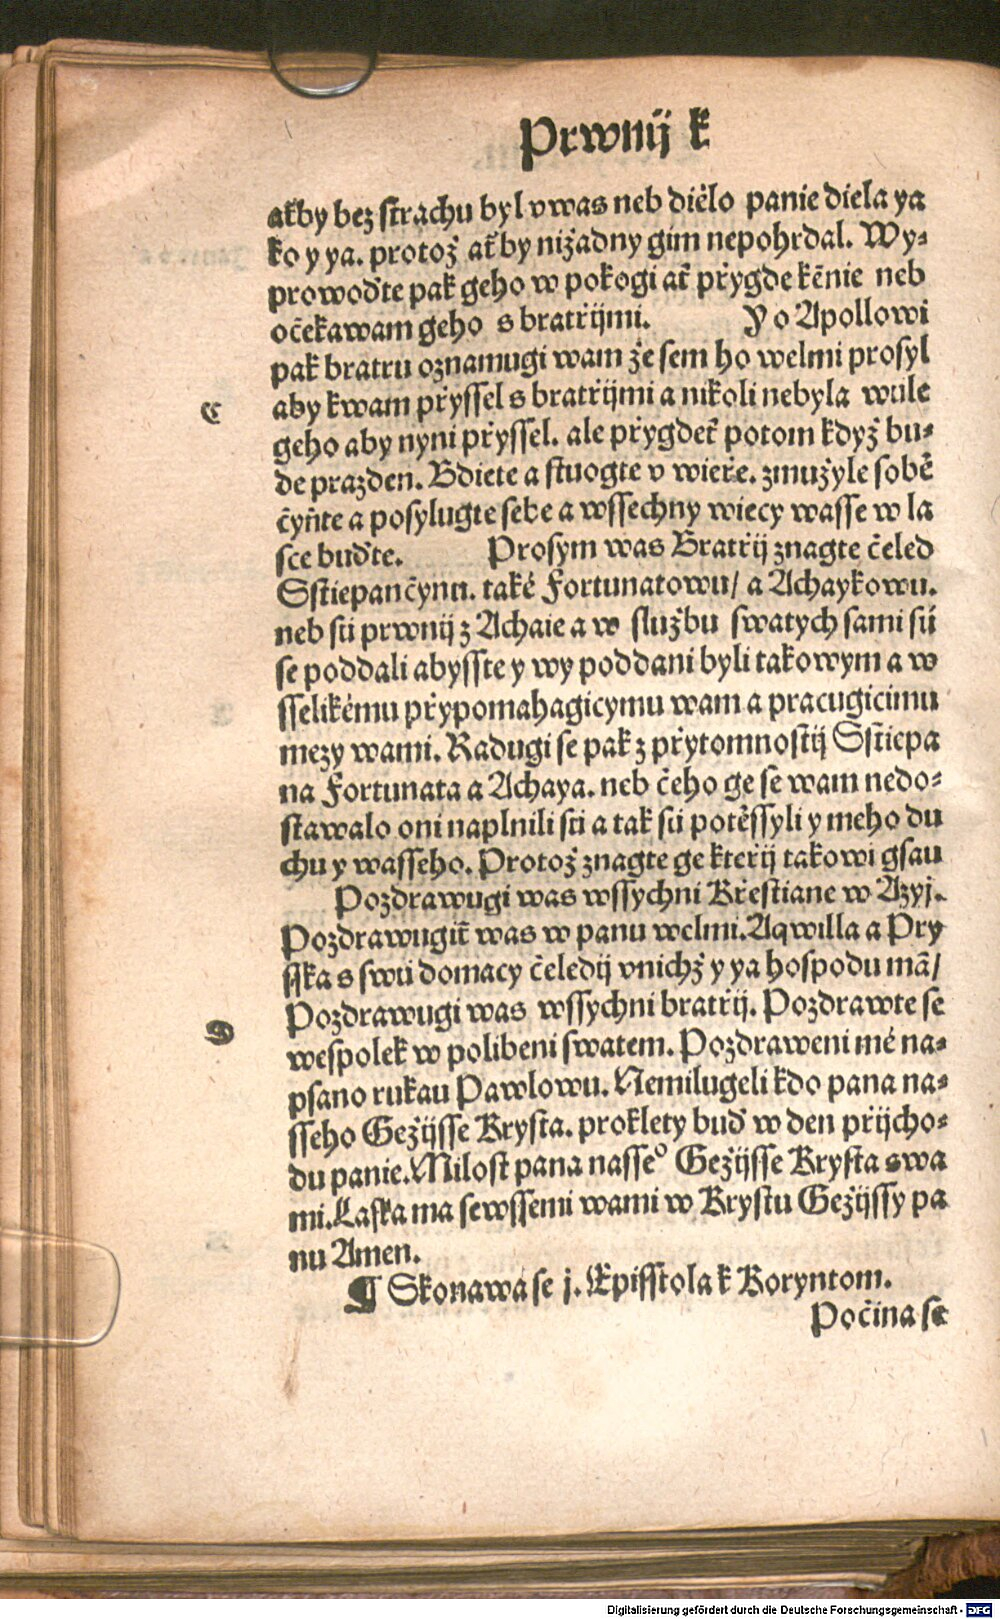 Prwnij k
ať̇by bez strachu byl v was neb diělo panie diela ya
ko y ya. protož ať̇by nižadny gim nepohrdal. Wy⸗
prowoďte pak geho w pokogi ať přygde kēnie neb
očekawam geho s bratřijmi. Y o Apollowi
pak bratru oznamugi wam že sem ho welmi prosyl
aby kwam přyssel s bratřijmi a nikoli nebyla wule
C
geho aby nyni přyssel. ale přygdeť potom když bu⸗
de prazden. Bdiete a stuogte v wieře. zmužyle sobě
čyňte a posylugte sebe a wssechny wiecy wasse w la
sce buďte. Prosym was Bratřij znagte čeled
Sstiepančynu. také Fortunatowu/ a Achaykowu.
neb sú prwnij z Achaie a w službu swatych sami sú
se poddali abysste y wy poddani byli takowym a w
sselikému přypomahagicymu wam a pracugicimu
mezy wami. Radugi se pak z přytomnostij Sstiepa
na Fortunata a Achaya. neb čeho ge se wam nedo⸗
stawalo oni naplnili sú a tak sú potěssyli y meho du
chu y wasseho. Protož znagte ge kteřij takowi gsau
Pozdrawugi was wssychni Křestiane w Azyj.
Pozdrawugiť was w panu welmi. Aqwilla a Pry
sska s swú domacy čeledij vnichž y ya hospodu mā/
Pozdrawugi was wssychni bratřij. Pozdrawte se
D
wespolek w polibeni swatem. Pozdraweni mé na⸗
psano rukau Pawlowu. Nemilugeli kdo pana na⸗
sseho Gežijsse Krysta. proklety buď w den přijcho⸗
du panie. Milost pana nasseº Gežijsse Krysta s wa
mi. Laska ma sewssemi wami w Krystu Gežijssy pa
nu Amen.
¶ Skonawa se j. Epistola k Koryntom.
Počina se
Digitalisierung gefördert durch die Deutsche Forschungsgemeinschaft - DFG